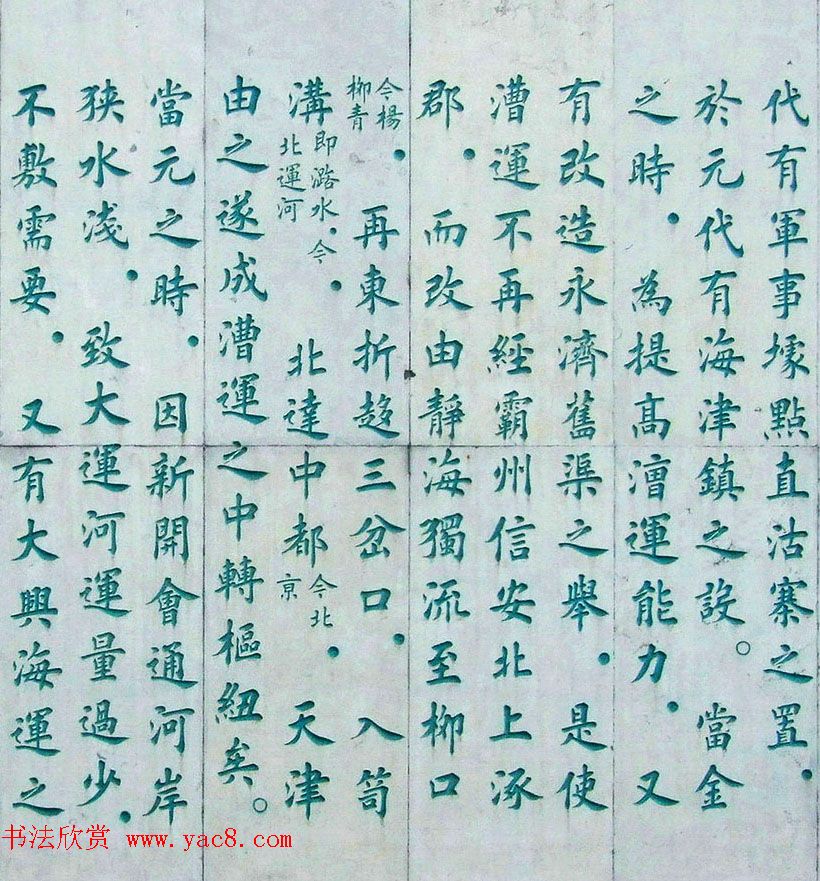 代有軍事據點直沽寨之置。
於元代有海津鎮之設。當金
之時。為提高漕運能力。又
有改造永濟舊渠之舉。是使
漕運不再經霸州信安北上涿
郡。而改由靜海獨流至柳口
今楊柳青。再東折趍三岔口。入笥
溝即潞水。今北運河。北達中都今北京天津
由之遂成漕運之中轉樞紐矣。
當元之時。因新開會通河岸
狹水浅。致大運河運量過少。
不敷需要。又有大興海運之
书法欣赏 www.yac8.com